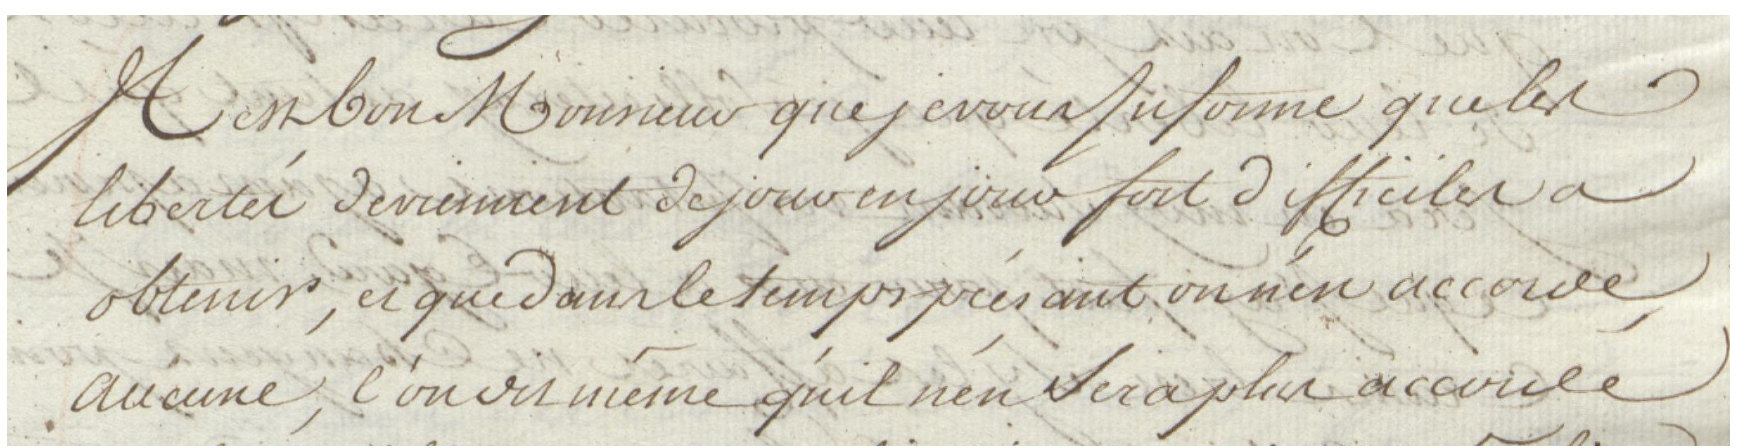 Il est bon Monsieur que je vous Informe que les
libertés deviennent de jour en jour fort difficiles a
obtenir, et que dans le temps présant on n'én accorde
aucune, l'on dit même qu'il n'én Sera plus accordé